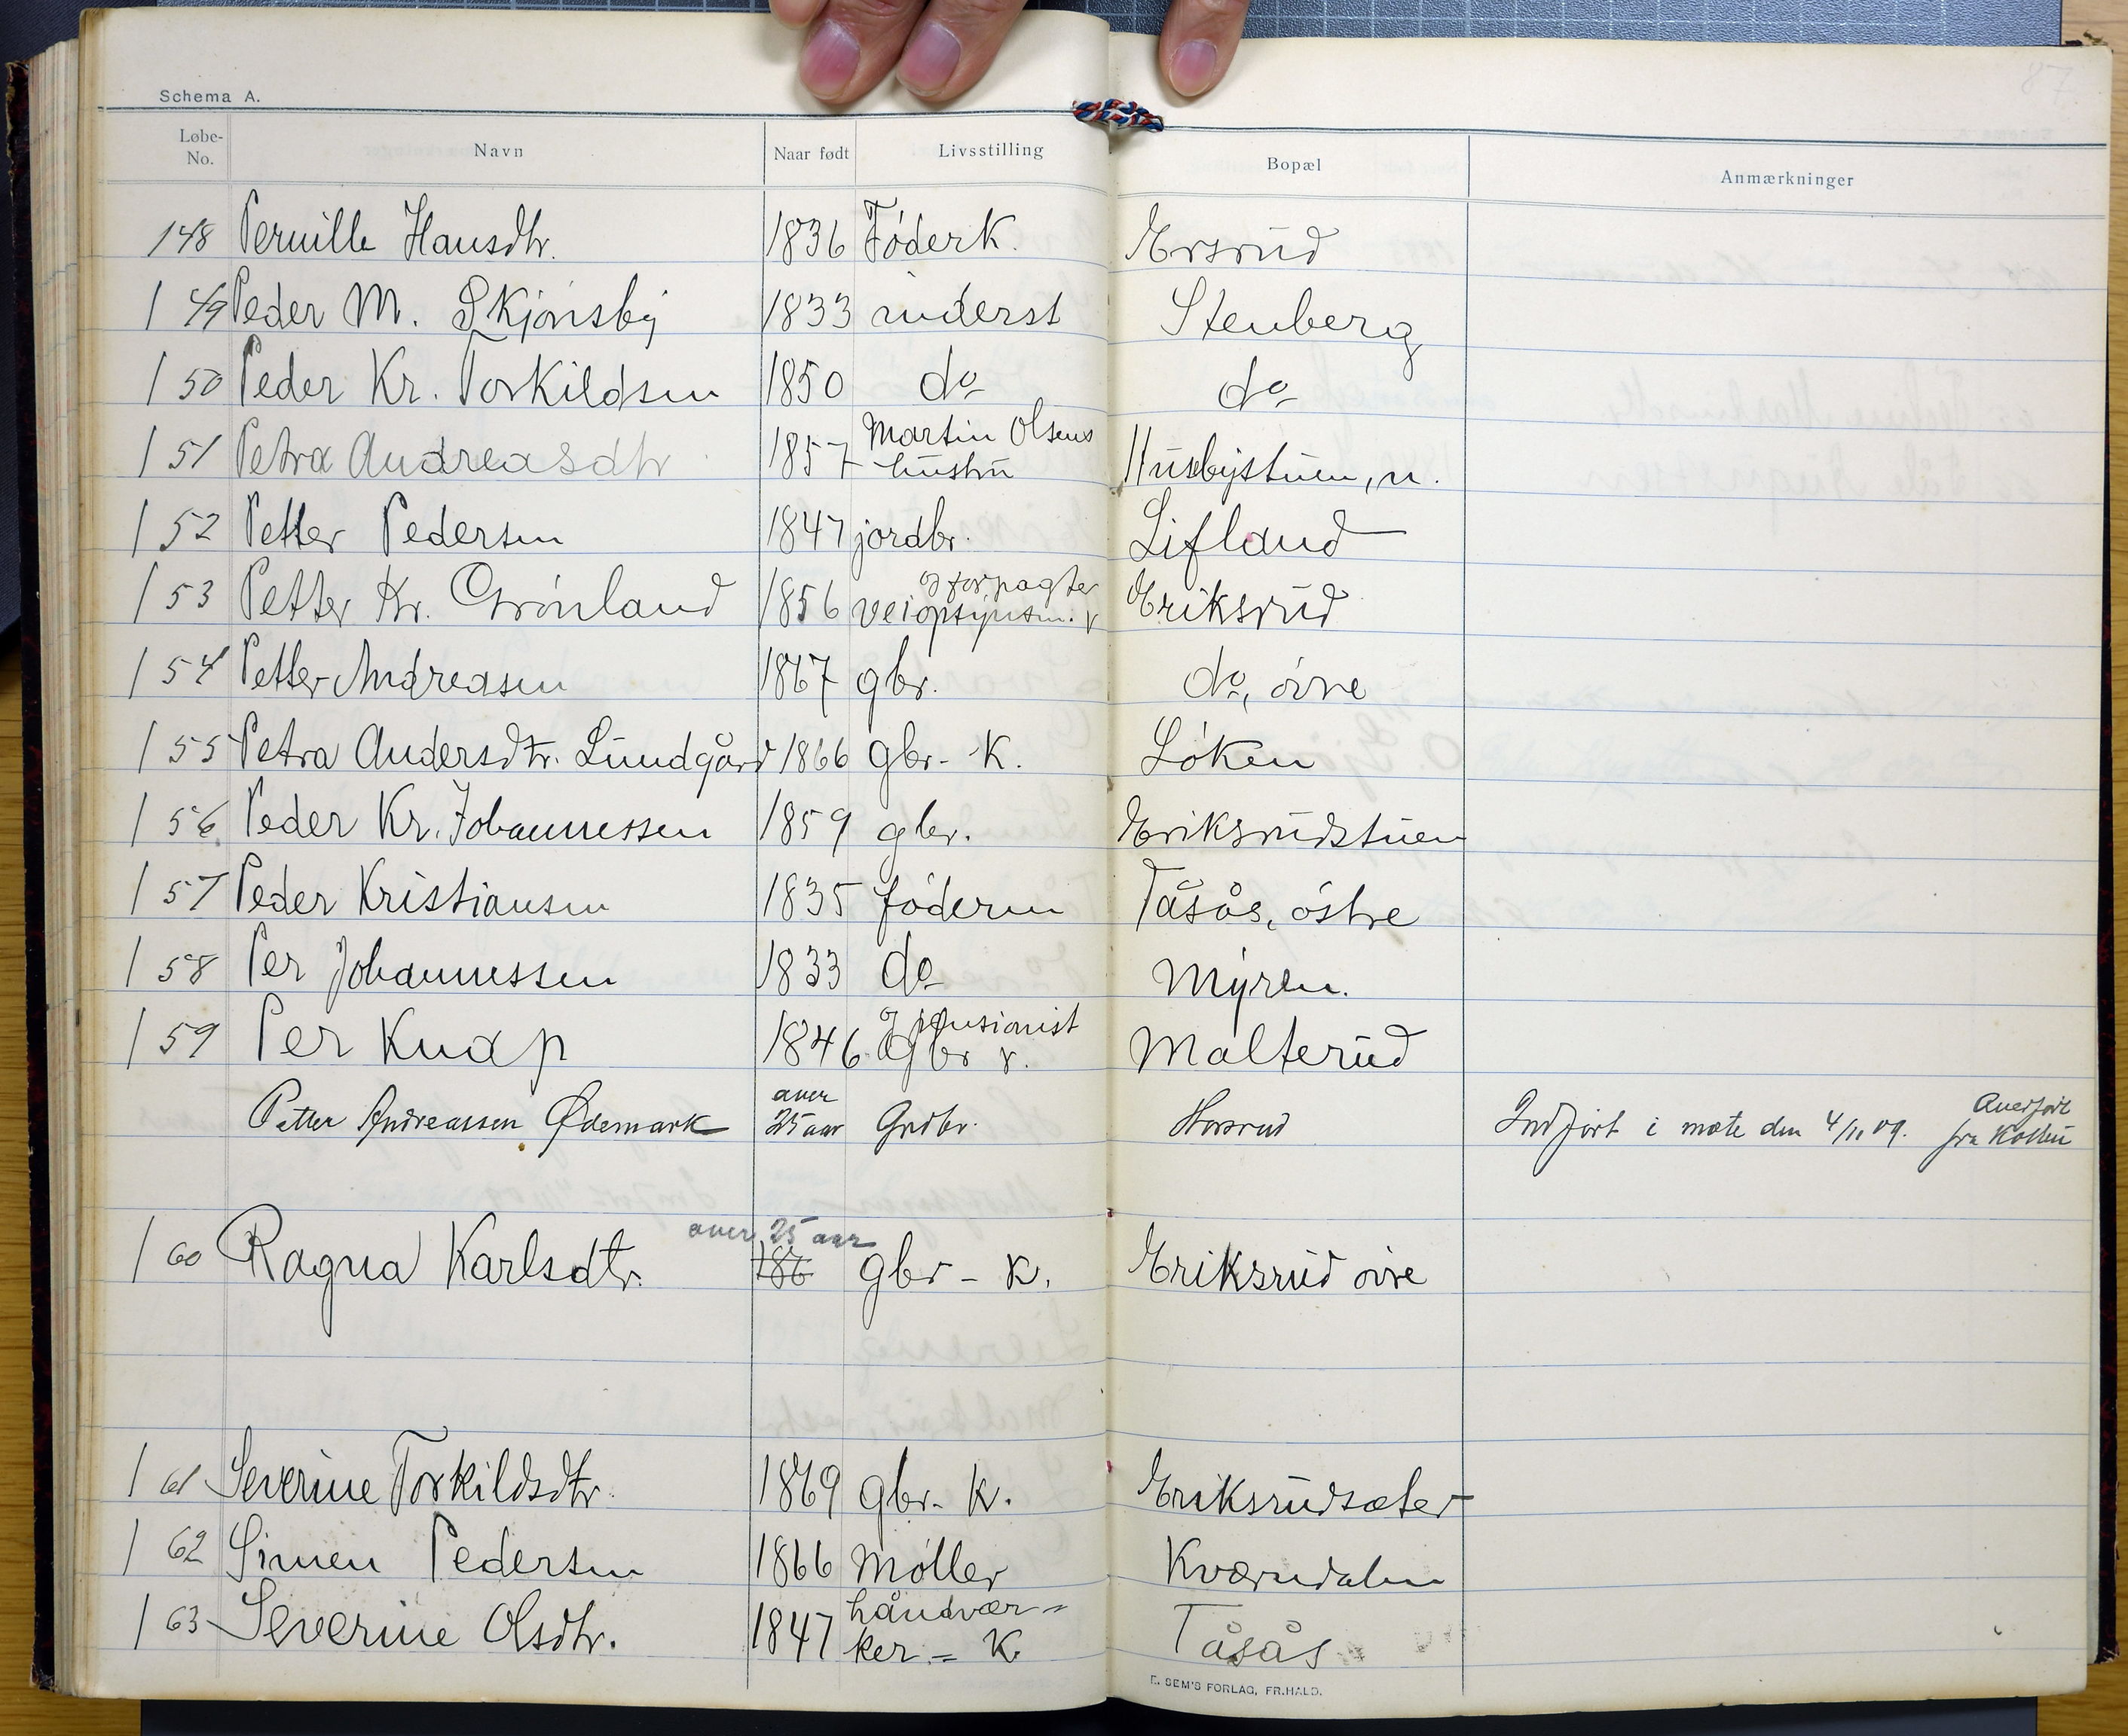 87
Schema A.
Løbe-No. Navn Naar født Livsstilling Bopæl Anmærkninger
148 Pernille Hansdtr. 1836 Föderk. Ersrud
149 Peder M. Skjønsby 1833 inderst Stenberg
150 Peder Kr. Torkildsen 1850 do do
151 Petra Andreasdtr 1857 Martin Olsens hustru Husebystuen, n.
152 Petter Pedersen 1847 jordbr. Lifland
153 Petter Kr. Grönland 1856 veiopsynsm. og forpagter Eriksrud
154 Petter Andreasen 1867 gbr. do, övre
155 Petra Andersdtr. Lundgård 1866 gbr-K. Löken
156 Peder Kr. Johannessen 1859 gbr. Eriksrudstuen
157 Peder Kristiansen 1835 föderm Tåsås, östre
158 Per Johannessen 1833 do Myren.
159 Per Knap 1846 Gbr og pensionist Malterud
Petter Andreassen Ødemark over 25 aar Grdbr. Horsrud Indført i møte den 4/11 09. Overført fra Kolbu
160 Ragna Karlsdtr. 186 over 25 aar gbr-K. Eriksrud övre
161 Severine Torkildsdtr. 1869 gbr-K. Eriksrudsæter
162 Simen Pedersen 1866 Möller Kværndalen
163 Severine Olsdtr. 1847 håndvær=ker=K. Tåsås
E. SEM'S FORLAG, FR.HALD.